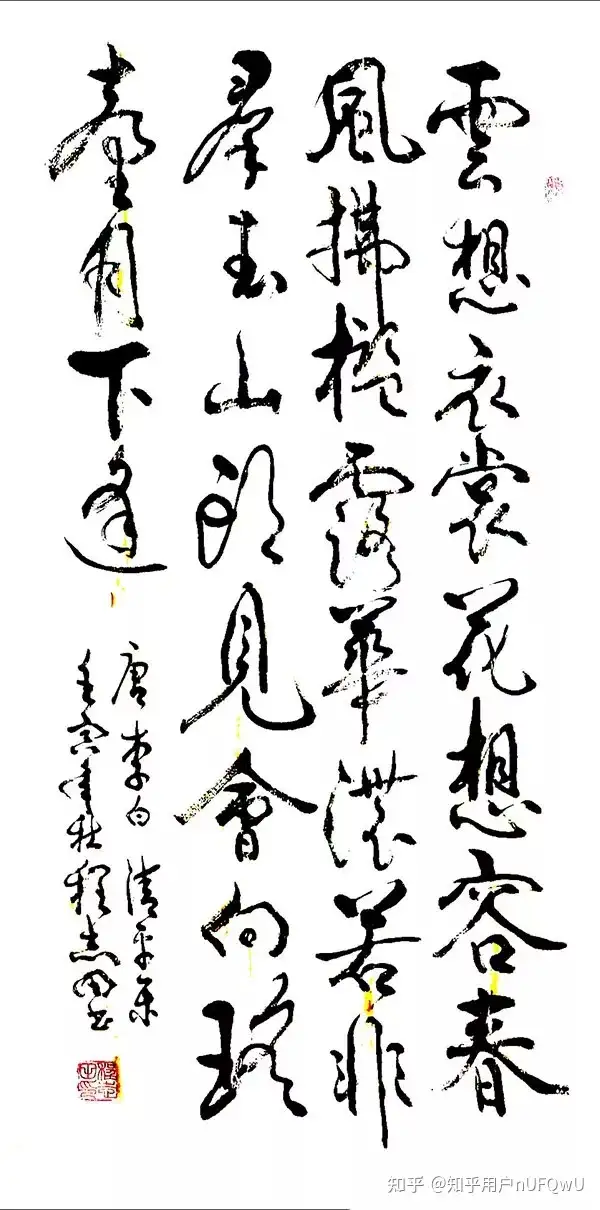 雲想衣裳花想容春
風拂檻露華濃若非
羣玉山頭見會向瑤
臺月下逢
唐李白 清平乐
壬寅年秋 程志田书
知乎 @知乎用户nUFQwU